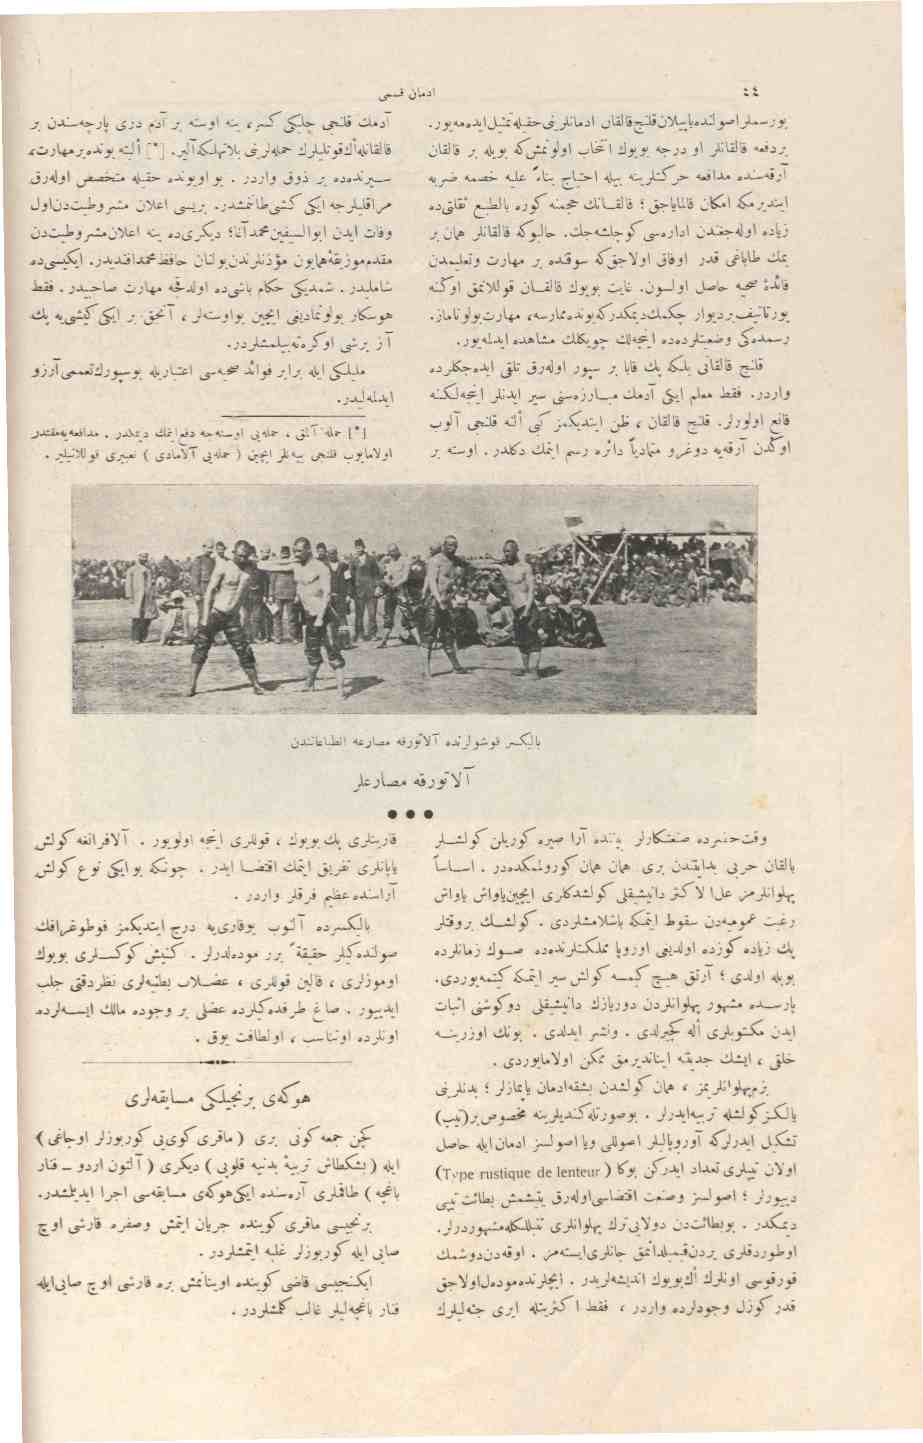 ٤٤
ادمان قسمى
بورسملر اصولنده یاپیلان قلنج قالقان ادمانلرینی حقیله تمثیل ایده‌مه‌یور.
بردفعه قالقانلر او درجه بویوك انتخاب اولونمش‌که بویله بر قالقان
آرقه‌سنده مدافعه حرکتلرینه بیله احتیاج بناءً علیه خصمه ضربه
ایندیرمکه امکان قالمایاجق؛ قالقانك حجمنه کوره بالطبع ثقلتی‌ده
زیاده اوله‌جغندن اداره‌سی کوجلشه‌جك. حالبوکه قالقانلر همان بر
یمك طاباغی قدر اوفاق اولاجق‌که سوقنده بر مهارت وتعلیمدن
فائدهٔ صحیه حاصل اولسون. غایت بویوك قالقان قوللانمق اوکنه
یورتاتیف بردیوار چکمك‌دیمکدرکه بونده ممارسه، مهارت بولوناماز.
رسمده‌کی وضعیتلرده‌ده اینجه‌لك چویکلك مشاهده ایدلمه‌یور.
قلنج قالقانی بلکه پك قابا بر سپور اوله‌رق تلقی ایده‌جکلرده
واردر. فقط معلم ایکی آدمك مبارزه‌سنی سیر ایدنلر اینجه‌لکنه
قانع اولورلر. قلنج قالقان، ظن ایتدیکمز کبی ألنه قلنجی آلوب
اوکدن آرقه‌یه دوغرو متمادیاً دائره رسم ایتمك دکلدر. اوسته بر
آدمك قلنجی چلیکی کسر، ینه اوسته بر آدم دری پارچه‌سندن بر
قالقانله أك قوتلیلرك حمله‌لرینی بلاتهلکه آلیر. [*] ألبته بونده بر مهارت،
سیرنده‌ده بر ذوق واردر. بو اویونده حقیله متخصص اوله‌رق
مراقلیلرجه ایکی کشی طانمشدر. بریسی اعلان مشروطیت‌دن اول
وفات ایدن ابوالسیفین محمد آغا؛ دیکری‌ده ینه اعلان مشروطیت‌دن
مقدم موزیقهٔ همایون مؤذنلرندن بولنان حافظ محمد افندیدر. ایکیسی‌ده
شاملیدر. شمدیکی حکام باشی‌ده اولدقجه مهارت صاحبیدر. فقط
هوسکار بولونمادیغی ایچین بواوسته‌لر، آنجق بر ایکی کیشی‌یه پك
آز برشی اوکره‌ته‌بیلمشلردر.
ملیلکی ایله برابر فوائد صحیه‌سی اعتباریله بوسپورك تعممی آرزو
ایدلمه‌لیدر.
[*] حمله آلمق، حمله‌یی اوسته‌جه دفع ایتمك دیمکدر. مدافعه‌یه مقتدر
اولامایوب قلنجی ییه‌نلر ایچین (حمله‌یی آلامادی) تعبیری قوللانیلیر.
بالیکسر قوشولرنده آلاتورقه مصارعه انطباعاتندن
آلاتورقه مصارعلر
وقت حضرده صنعتکارلر یدنده آرا صیره کوریلن کولشلر
بالقان حربی بدایتندن بری همان همان کورولمکده‌در. اساساً
پهلوانلرمز علی الاکثر دانیشیقلی کولشدکلری ایچین یاواش یاواش
رغبت عمومیه‌دن سقوط ایتمکه باشلامشلردی. کولشك بروقتلر
پك زیاده کوزده اولدیغی اوروپا مملکتلرنده‌ده صوك زمانلرده
بویله اولدی؛ آرتق هیچ کیمسه کولش سیر ایتمکه کیتمه‌یوردی.
پارسده مشهور پهلوانلردن دوریازك دانیشیقلی دوکوشنی اثبات
ایدن مکتوبلری أله کچیرلدی. ونشر ایدلدی. بونك اوزرینه
خلقی، ایشك جدیتنه ایناندیرمق ممکن اولامایوردی.
بزم پهلوانلریمز، همان کولشدن بشقه ادمان یاپمازلر؛ بدنلرینی
یالکز کولشله تربیه ایدرلر. بوصورتله کندیلرینه مخصوص بر (تیپ)
تشکیل ایدرلرکه آوروپالیلر اصوللی ویا اصولسز ادمان ایله حاصل
اولان تیپلری تعداد ایدرکن بوکا (Type rustique de lenteur)
دییورلر؛ اصولسز وصنعت اقتضاسی اوله‌رق یتیشمش بطائت تیپی
دیمکدر. بوبطائت‌دن دولایی ترك پهلوانلری تنبللکله مشهوردرلر.
اوطوردقلری یردن قیمیلدانمق جانلری ایسته‌مز. اوقه‌دن دوشمك
قورقوسی اونلرك أك بویوك اندیشه‌لریدر. ایچلرنده مودل اولاجق
قدر کوزل وجودلرده واردر، فقط اکثریتله ایری جثه‌لیلرك
قارینلری پك بویوك، قوللری اینجه اولویور. آلافرانغه کولش
یاپانلری تفریق ایتمك اقتضا ایدر. چونکه بو ایکی نوع کولش
آراسنده عظیم فرقلر واردر.
بالیکسرده آلنوب یوقاری‌یه درج ایتدیکمز فوطوغرافك
صولنده‌کیلر حقیقةً برر مودەلدرلر. کنیش کوکسلری بویوك
اوموزلری، قالین قوللری، عضلات بطنیه‌لری نظردقتی جلب
ایدییور. صاغ طرفده‌کیلرده عضلی بر وجوده مالك ایسه‌لرده
اونلرده اوتناسب، اولطافت یوق.
هوکه‌ی برنجیلکی مسابقه‌لری
کچن جمعه کونی بری (ماقری کوی‌یی کوربوزلر اوجاغی)
ایله (بشکطاش تربیهٔ بدنیه قلوبی) دیکری (آلتون اردو ـ فنار
باغچه) طاقملری آره‌سنده ایکی هوکه‌ی مسابقه‌سی اجرا ایدیلمشدر.
برنجیسی ماقری کوینده جریان ایتمش وصفره قارشی اوچ
صایی ایله کوربوزلر غلبه ایتمشلردر.
ایکنجیسی قاضی کوینده اوینانمش بره قارشی اوچ صایی ایله
فنار باغچه‌لیلر غالب کلمشلردر.